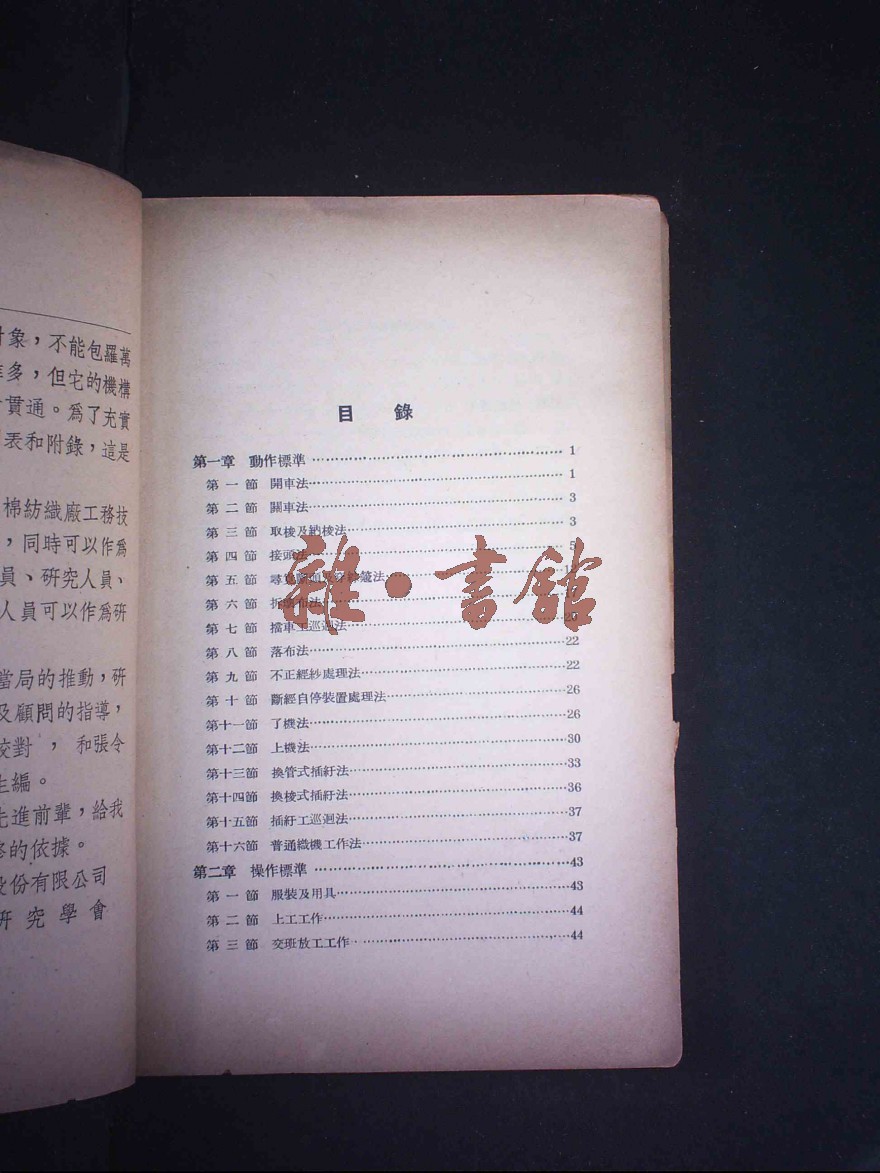 象，不能包羅萬
多，但它的機構
貫通。爲了充實
表和附錄，這是
棉紡織廠工務技
，同時可以作爲
員、研究人員、
人員可以作爲研
當局的推動，研
及顧問的指導，
校對，和張令
生編。
先進前輩，給我
的依據。
股份有限公司
研究學會
目錄
第一章 動作標準 1
第一節 開車法 1
第二節 關車法 3
第三節 取梭及納梭法 3
第四節 接頭法 5
第五節
第六節 拆布法
第七節 擋車工巡迴法 20
第八節 落布法 22
第九節 不正經紗處理法 22
第十節 斷經自停裝置處理法 26
第十一節 了機法 26
第十二節 上機法 30
第十三節 換管式插紆法 33
第十四節 換梭式插紆法 36
第十五節 插紆工巡迴法 37
第十六節 普通織機工作法 37
第二章 操作標準 43
第一節 服裝及用具 43
第二節 上工工作 44
第三節 交班放工工作 44
雜·書館